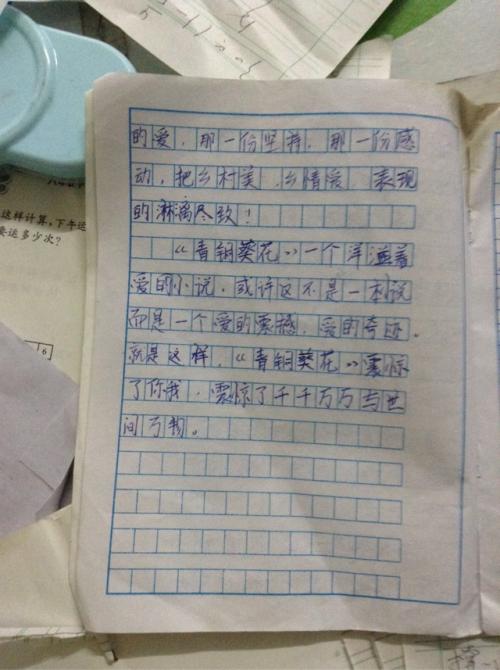 的爱，那一份坚持，那一份感
动，把乡村美，乡情爱，表现
的淋漓尽致！
《青铜葵花》一个洋溢着
爱的小说，或许这不是一本说
而是一个爱的震撼，爱的奇迹。
就是这样，《青铜葵花》震惊
了你我，震惊了千千万万与世
间万物。
这样计算，下午运
要运多少次？
6